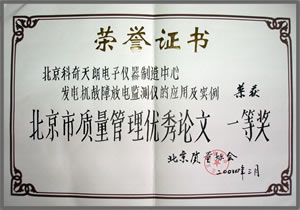 荣誉证书
北京科奇天朗电子仪器制造中心
发电机故障放电监测仪的应用及实例 荣获
北京市质量管理优秀论文 一等奖
北京质量协会